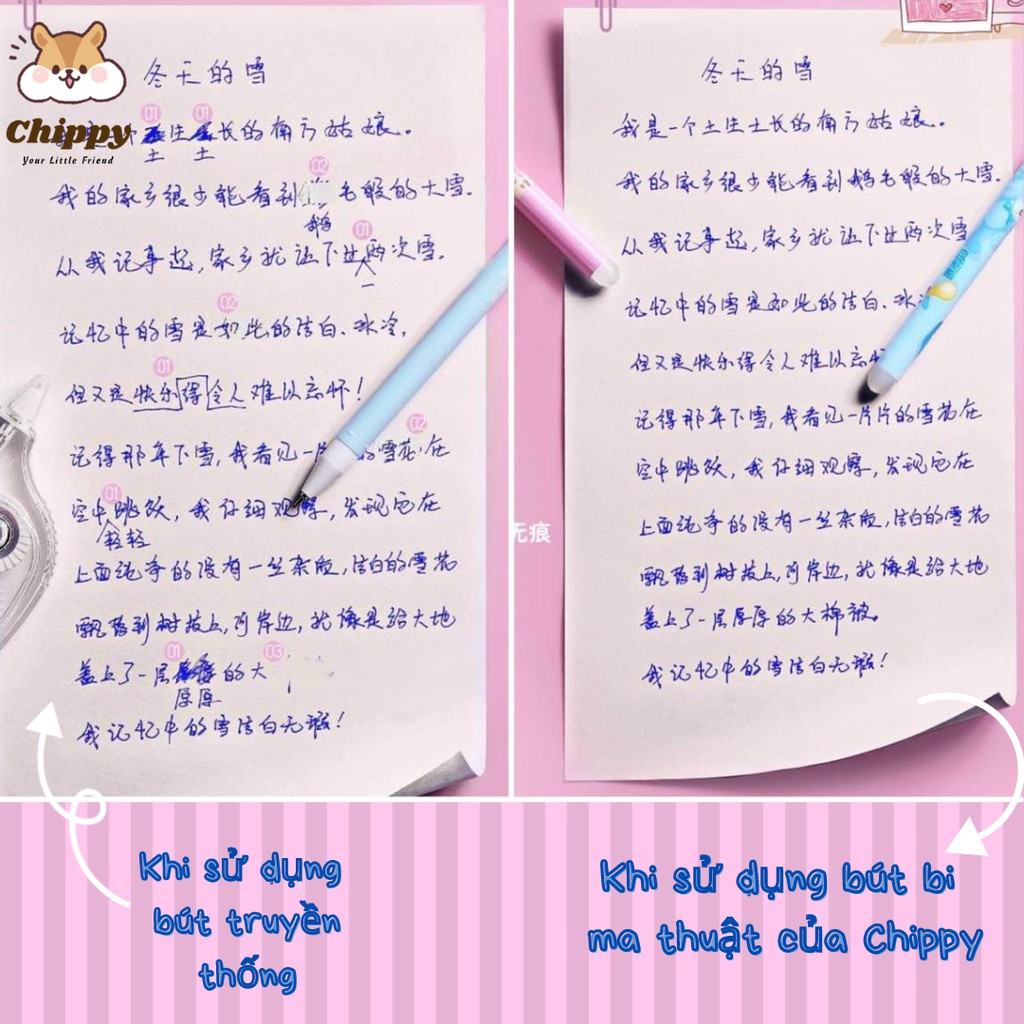 Chippy
Your Little Friend
冬天的雪
01 01
生 长的南方姑娘。
土 土
02
我的家乡很少能看到 毛般的大雪.
鹅
01
从我记事起,家乡就让下过两次雪.
一
02
记忆中的雪是如此的洁白、冰冷,
01
但又是快乐得令人难以忘怀!
02
记得那年下雪,我看见一片 的雪花在
01
空中跳跃,我仔细观察,发现它在
轻轻
上面纯净的没有一丝杂般,洁白的雪花
飘落到树枝上,河岸边,就像是给大地
01 03
盖上了一层 的大
厚厚
我记忆中的雪洁白无瑕!
冬天的雪
我是一个土生土长的南方姑娘。
我的家乡很少能看到鹅毛般的大雪.
从我记事起,家乡就让下过两次雪
记忆中的雪是如此的洁白、冰
但又是快乐得令人难以忘
记得那年下雪,我看见一片片的雪花在
空中跳跃,我仔细观察,发现它在
上面纯净的没有一丝杂般,洁白的雪花
飘落到树枝上,河岸边,就像是给大地
盖上了一层厚厚的大棉被。
我记忆中的雪洁白无瑕!
无痕
Khi sử dụng
bút truyền
thống
Khi sử dụng bút bi
ma thuật của Chippy